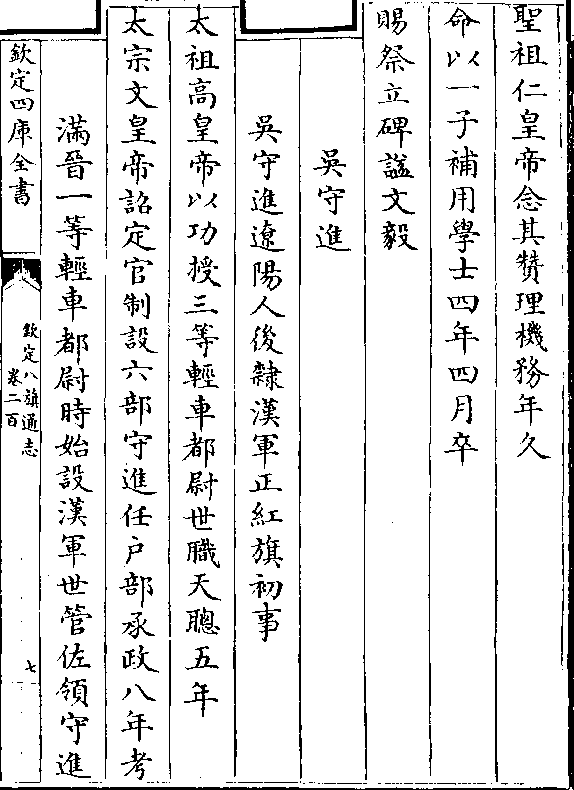 聖祖仁皇帝念其贊理機務年久
命以一子補用學士四年四月卒
賜祭立碑諡文毅
吳守進
吳守進遼陽人後隸漢軍正紅旗初事
太祖高皇帝以功授三等輕車都尉世職天聰五年
太宗文皇帝詔定官制設六部守進任戶部承政八年考
滿晉一等輕車都尉時始設漢軍世管佐領守進
欽定四庫全書
欽定八旗通志
卷二百
七